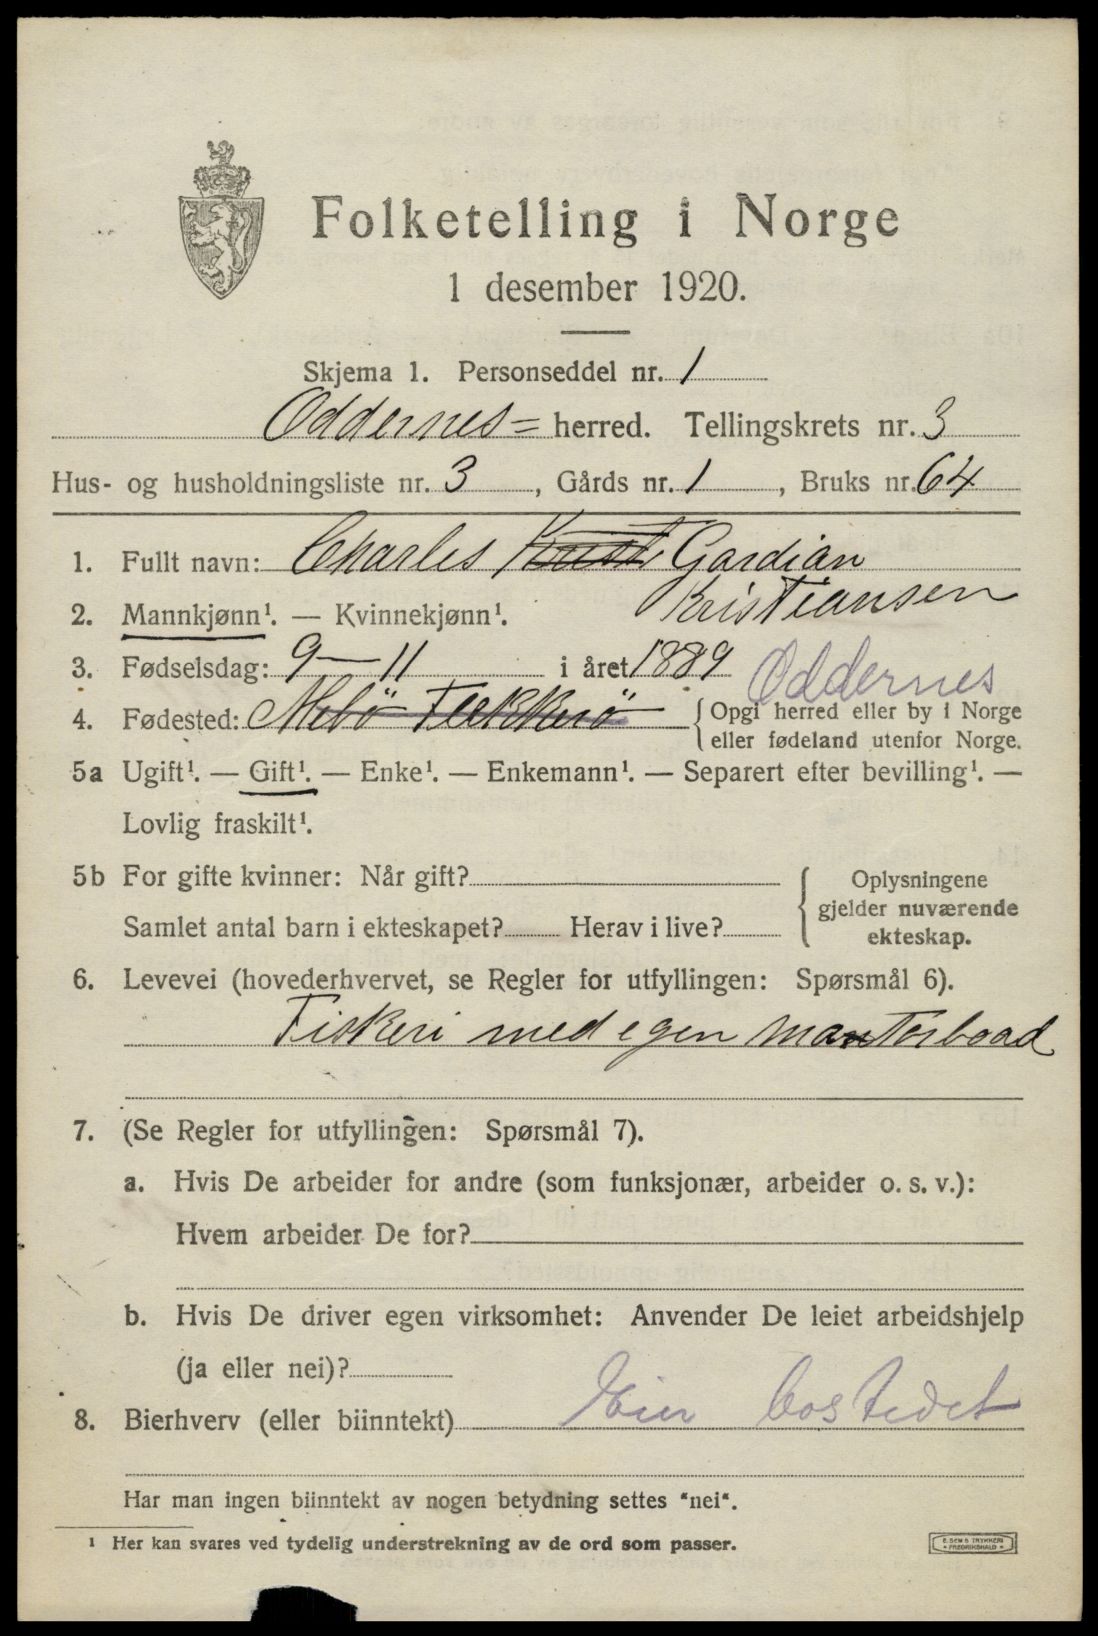 Folketelling i Norge
1 desember 1920.
Skjema 1. Personseddel nr. 1
Oddernes= herred. Tellingskrets nr. 3
Hus- og husholdningsliste nr. 3, Gårds nr. 1, Bruks nr. 64
1. Fullt navn: Charles Gardian
Kristiansen
2. Mannkjønn¹. — Kvinnekjønn¹.
3. Fødselsdag: 9–11 i året 1889
Oddernes
4. Fødested: Mebö Flekkerö { Opgi herred eller by i Norge
eller fødeland utenfor Norge.
5a Ugift¹. — Gift¹. — Enke¹. — Enkemann¹. — Separert efter bevilling¹. —
Lovlig fraskilt¹.
5b For gifte kvinner: Når gift?
Samlet antal barn i ekteskapet? Herav i live?
{ Oplysningene
gjelder nuværende
ekteskap.
6. Levevei (hovederhvervet, se Regler for utfyllingen: Spørsmål 6).
Fiskeri med egen Mantorboad
7. (Se Regler for utfyllingen: Spørsmål 7).
a. Hvis De arbeider for andre (som funksjonær, arbeider o. s. v.):
Hvem arbeider De for?
b. Hvis De driver egen virksomhet: Anvender De leiet arbeidshjelp
(ja eller nei)?
8. Bierhverv (eller biinntekt) Eier bostedet
Har man ingen biinntekt av nogen betydning settes "nei".
¹ Her kan svares ved tydelig understrekning av de ord som passer.
E. SEM'S TRYKKERI
FREDRIKSHALD